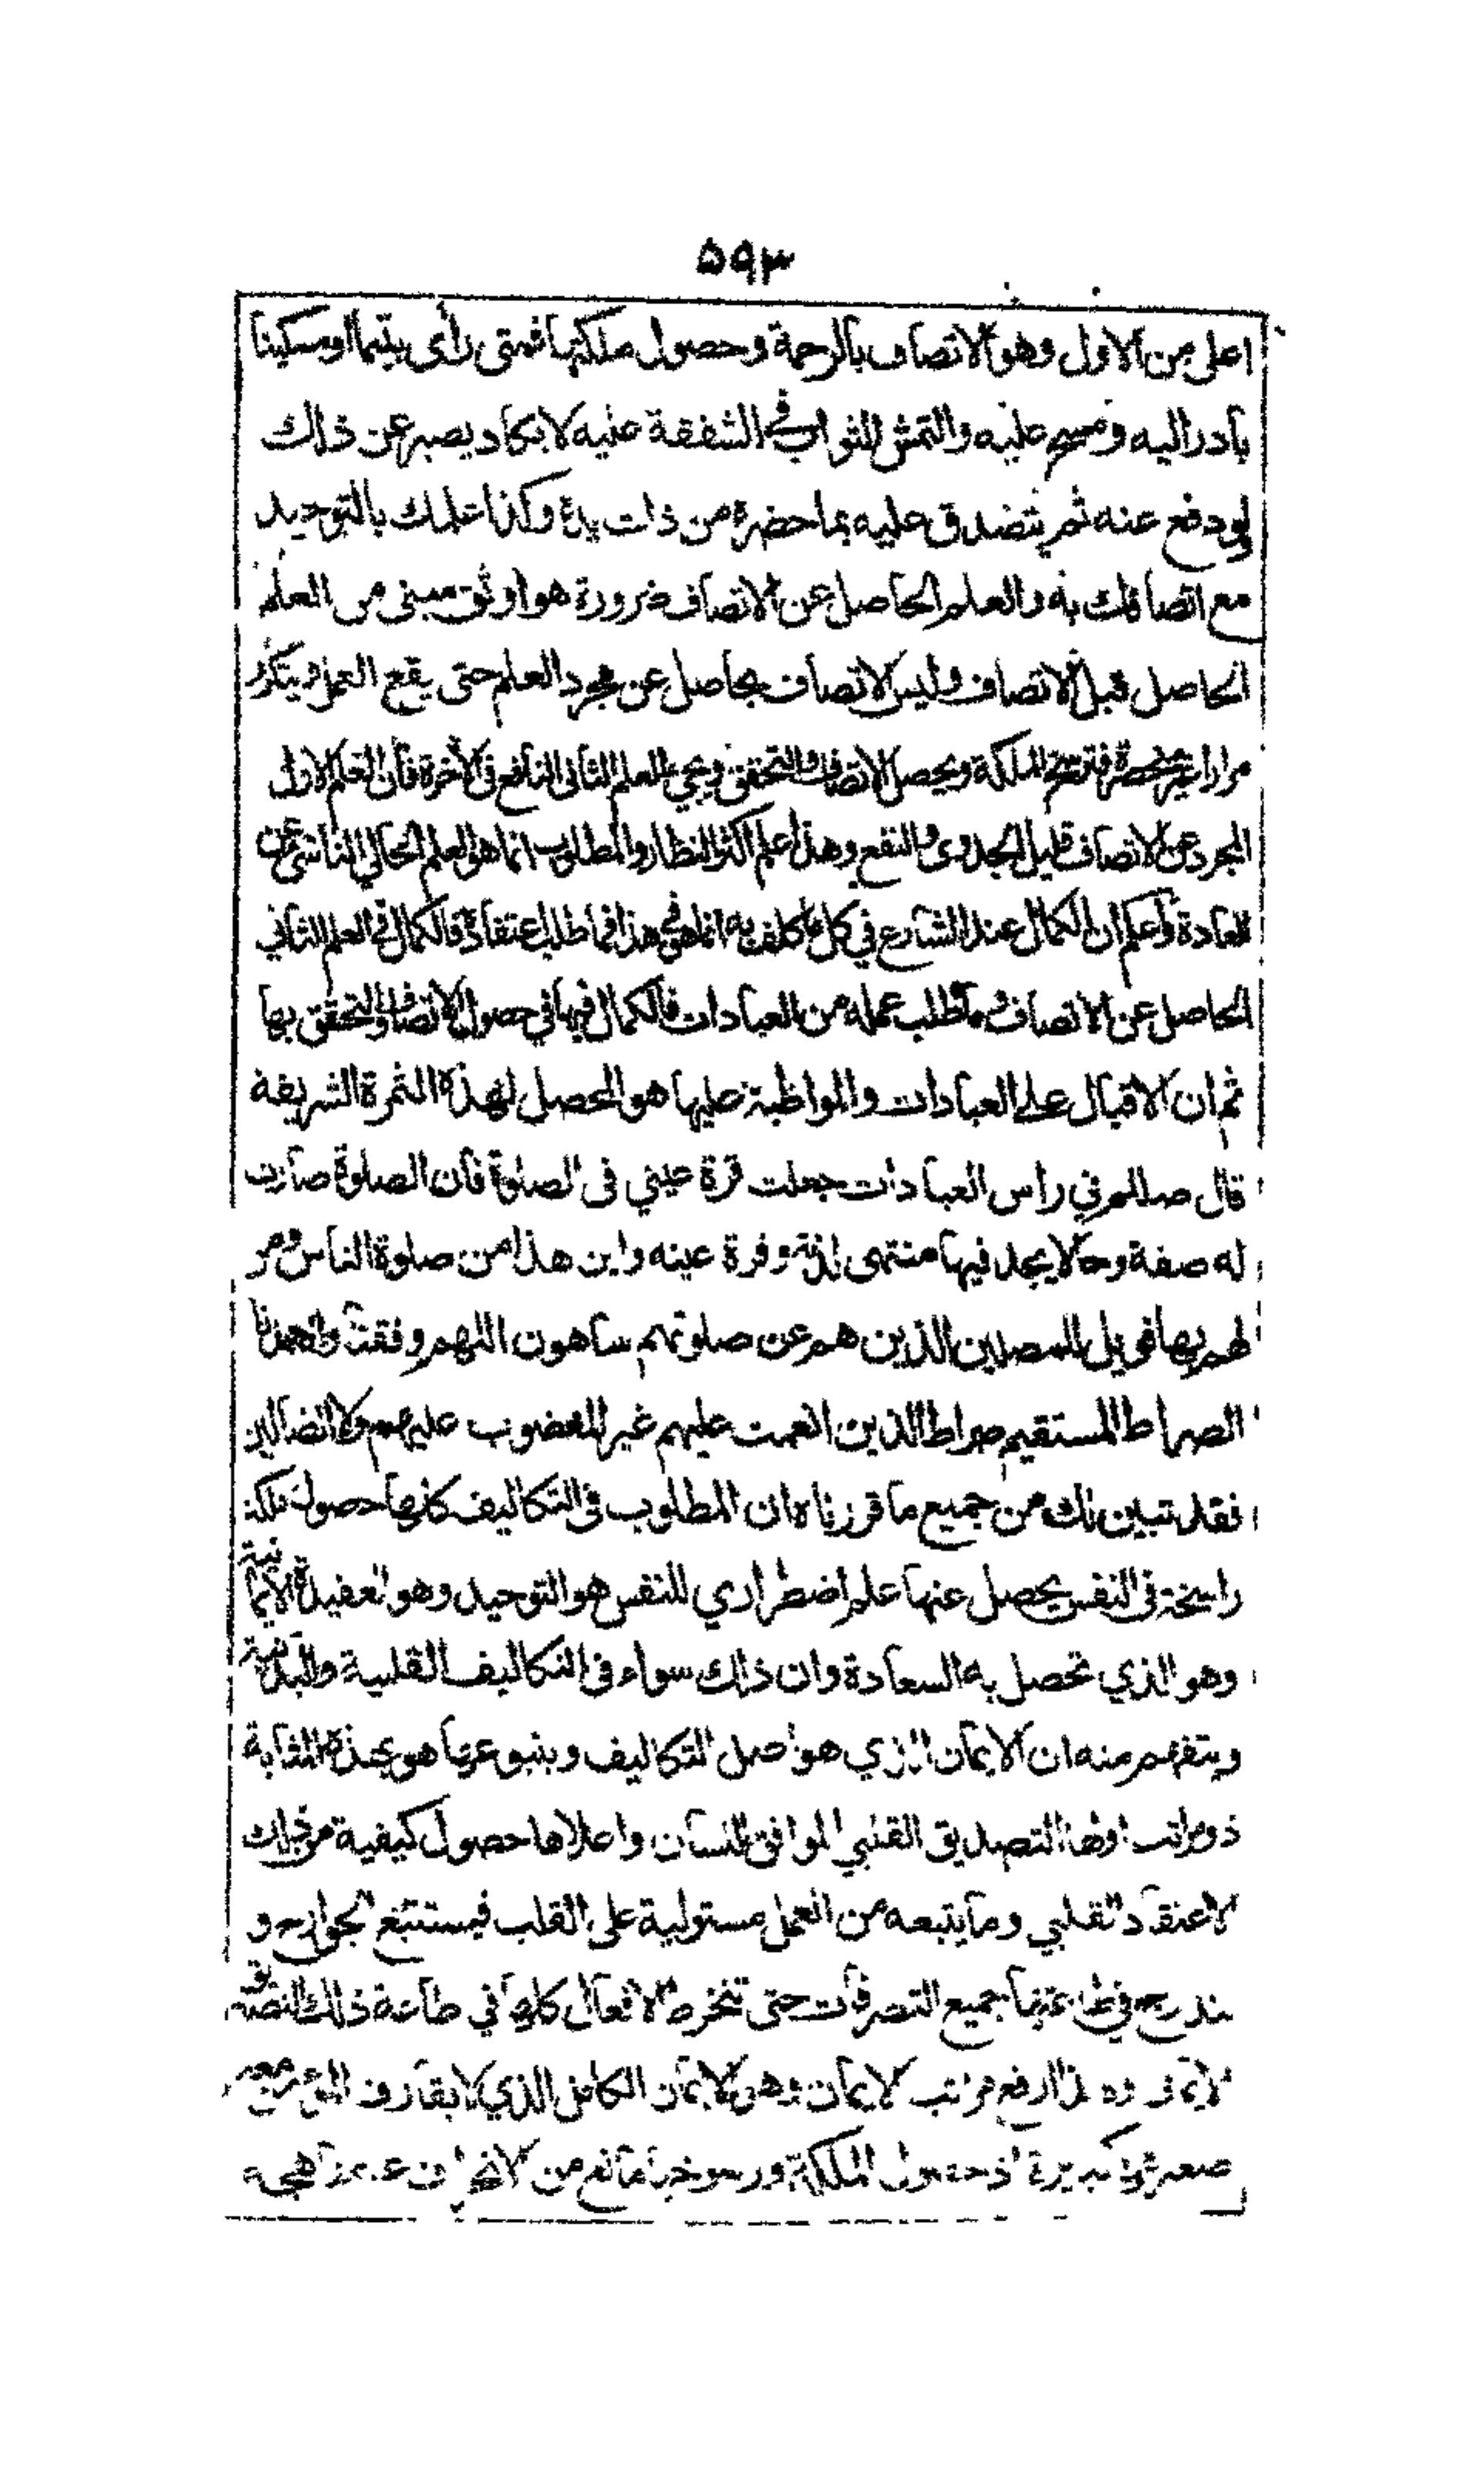 ۵۹۳
اعلى من الاول وهو الاتصاف بالرحمة وحصول ملكتها فمتى رأى يتيما او مسكينا
بادر اليه ومسح عليه والتمس الثواب في الشفقة عليه لا يكاد يصبر عن ذلك
لو دفع عنه ثم يتصدق عليه بما حضره من ذات يده وكذا علمك بالتوحيد
مع اتصافك به والعلم الحاصل عن الاتصاف ضرورة هو اوثق مبنى من العلم
الحاصل قبل الاتصاف وليس الاتصاف بحاصل عن مجرد العلم حتى يقع العمل ويتكرر
مرارا غير منحصرة فترسخ الملكة ويحصل الاتصاف والتحقق ويجي العلم الثاني النافع في الآخرة فان العلم الاول
المجرد عن الاتصاف قليل الجدوى والنفع وهذا علم اكثر النظار والمطلوب انما هو العلم الحالي الناشي عن
العادة واعلم ان الكمال عند الشارع في كل ما كلف به انما هو في هذا فما طلب اعتقاده فالكمال في العلم الثاني
الحاصل عن الاتصاف وما طلب عمله من العبادات فالكمال فيها في حصول الاتصاف والتحقق بها
ثم ان الاقبال على العبادات والمواظبة عليها هو المحصل لهذه الثمرة الشريفة
قال صللم في راس العبادات جعلت قرة عيني في الصلوة فان الصلوة صارت
له صفة وحالا يجد فيها منتهى لذته وقرة عينه واين هذا من صلوة الناس ومن
لهم بها فويل للمصلين الذين هم عن صلوتهم ساهون اللهم وفقنا واهدنا
الصراط المستقيم صراط الذين انعمت عليهم غير المغضوب عليهم ولا الضالين
فقد تبين لك من جميع ما قررناه ان المطلوب في التكاليف كلها حصول ملكة
راسخة في النفس يحصل عنها علم اضطراري للنفس هو التوحيد وهو العقيدة الايمانية
وهو الذي تحصل به السعادة وان ذلك سواء في التكاليف القلبية والبدنية
ويتفهم منه ان الايمان الذي هو اصل التكاليف وينبوعها هو بهذه المثابة
ذو مراتب اولها التصديق القلبي الموافق للسان واعلاها حصول كيفية من ذلك
الاعتقاد القلبي وما يتبعه من العمل مستولية على القلب فيستتبع الجوارح و
يندرج في طاعتها جميع التصرفات حتى تنخرط الافعال كلها في طاعة ذلك التصديق
الايماني وهذا ارفع مراتب الايمان وهو الايمان الكامل الذي لا يقارف المؤمن معه
صغيرة ولا كبيرة اذ حصول الملكة ورسوخها مانع من الانحراف عن مناهجه